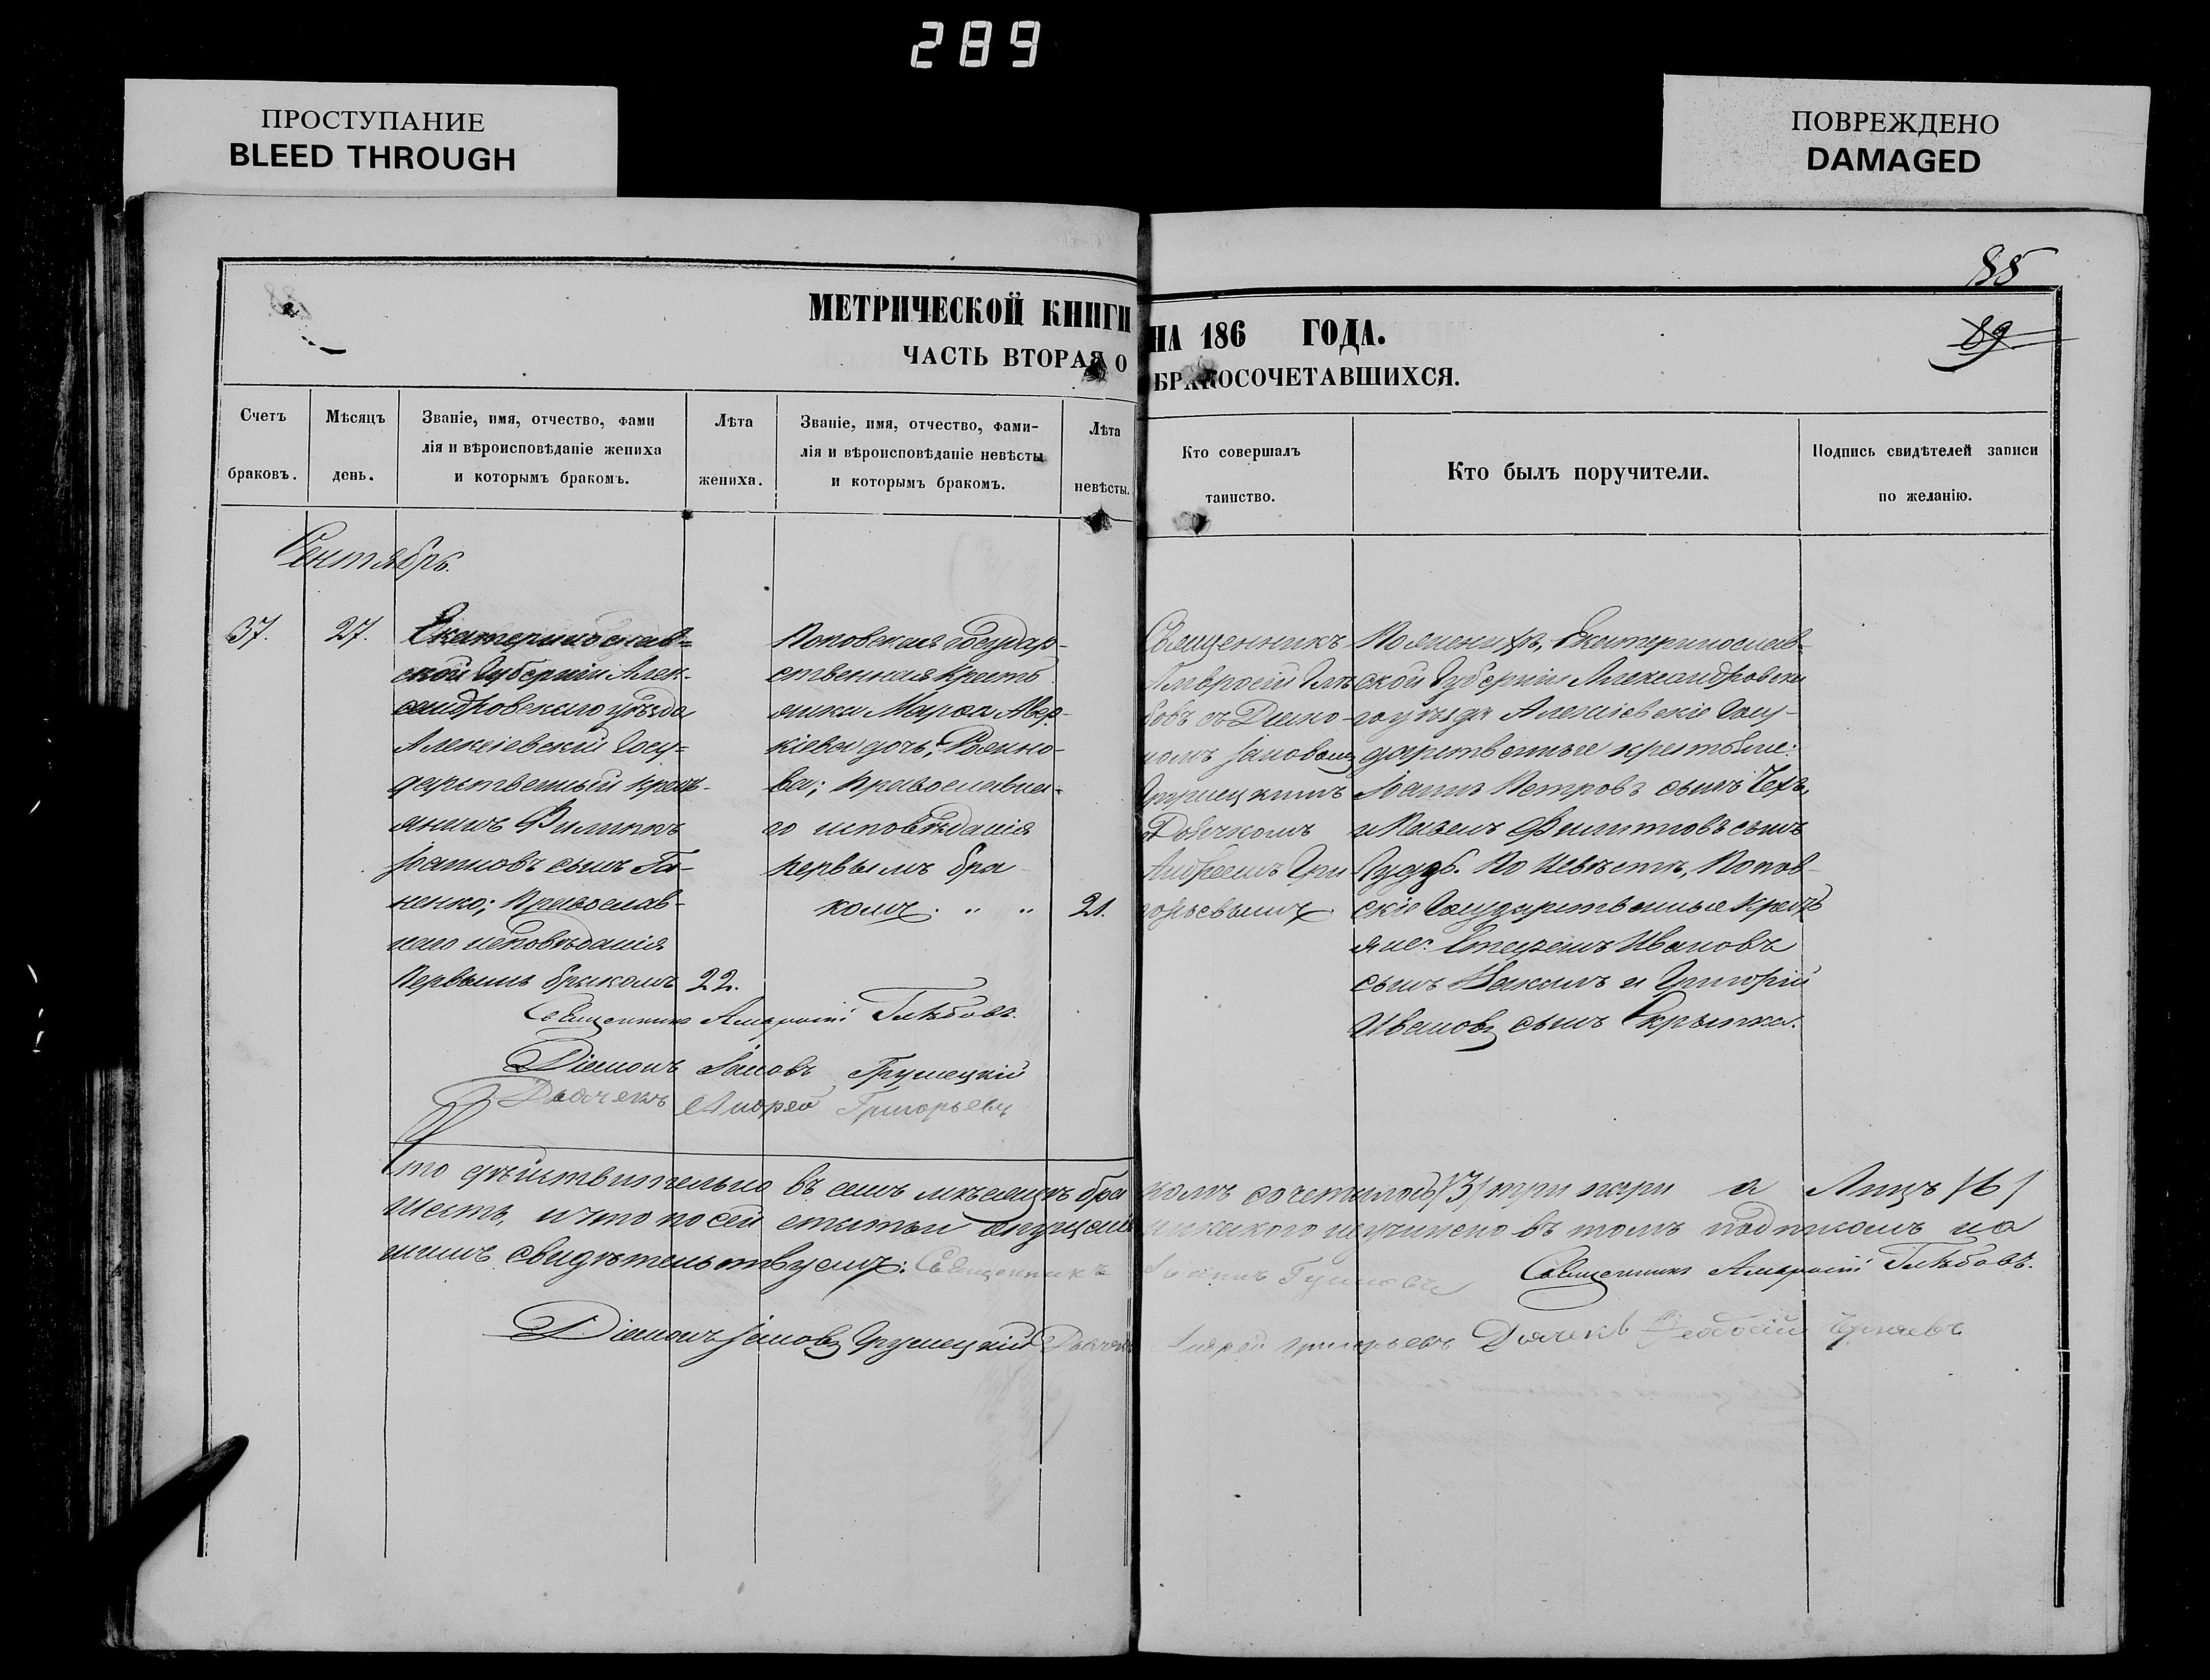 289
ПРОСТУПАНИЕ
BLEED THROUGH
ПОВРЕЖДЕНО
DAMAGED
85
89
МЕТРИЧЕСКОЙ КНИГИ НА 186 ГОДА.
ЧАСТЬ ВТОРАЯ О БРАКОСОЧЕТАВШИХСЯ.
Счетъ
браковъ.
Мѣсяцъ
день.
Званіе, имя, отчество, фами
лія и вѣроисповѣданіе жениха
и которымъ бракомъ.
Лѣта
жениха.
Званіе, имя, отчество, фами-
лія и вѣроисповѣданіе невѣсты
и которымъ бракомъ.
Лѣта
невѣсты.
Кто совершалъ
таинство.
Кто былъ поручители.
Подпись свидѣтелей записи
по желанію.
Сентябрь.
37.
27.
Екатеринослав=
ской Губерніи Алек-
сандровскаго уѣзда
Алексіевскій Госу=
дарственный крест-
янинъ Филиппъ
Іоанновъ сынъ Га-
ненко; Православ-
наго исповѣданія
Первымъ бракомъ
22.
Поповская Государ-
ственная Кресть
янка Марѳа Авер-
кіева дочь,
ва; Православна-
го исповѣданія
первымъ бра
комъ. " "
21.
Священникъ
Амвросій Глѣ
бовъ съ Діако-
номъ Іаковомъ
Грушецкимъ
и Дьячкомъ
Андреемъ Гри
горьевымъ
По женихѣ, Екатеринослав-
ской Губерніи Александровска
го уѣзда Алексіевскіе Госу-
дарственные крестьяне:
Іоаннъ Петровъ сынъ Чехъ,
и Павелъ Филипповъ сынъ
Гудзь. По Невѣстѣ, Попов-
скіе Государственные Кресть
яне: Стефанъ Ивановъ
сынъ и Григорій
Ивановъ сынъ Скрыпка.
Священникъ Амвросій Глѣбовъ.
Діаконъ Іаковъ Грушецкій
Дьячекъ Андрей Григорьевъ
Что дѣйствительно въ семъ мѣсяцѣ бракомъ сочеталось /3/ три пари а Лицъ /6/
шесть, и что по сей статьи опущенія никакого неучинено въ томъ подпискомъ на
шимъ свидѣтельствуемъ: Священникъ Іоаннъ Священникъ Амвросій Глѣбовъ.
Діаконъ Іаковъ Грушецкій Дьячекъ Андрей Григорьевъ Дьячекъ Ѳеодосій